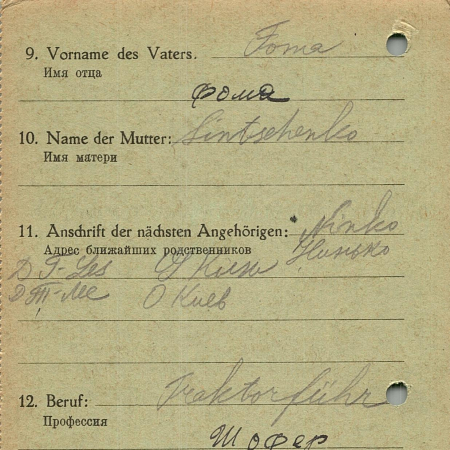 9. Vorname des Vaters. Foma
Имя отца
фома
10. Name der Mutter: Sintschenko
Имя матери
11. Anschrift der nächsten Angehörigen: Ninko
Адрес ближайших родственников Нинько
О Киев
12. Beruf: Traktorführ
Профессия
Шофер